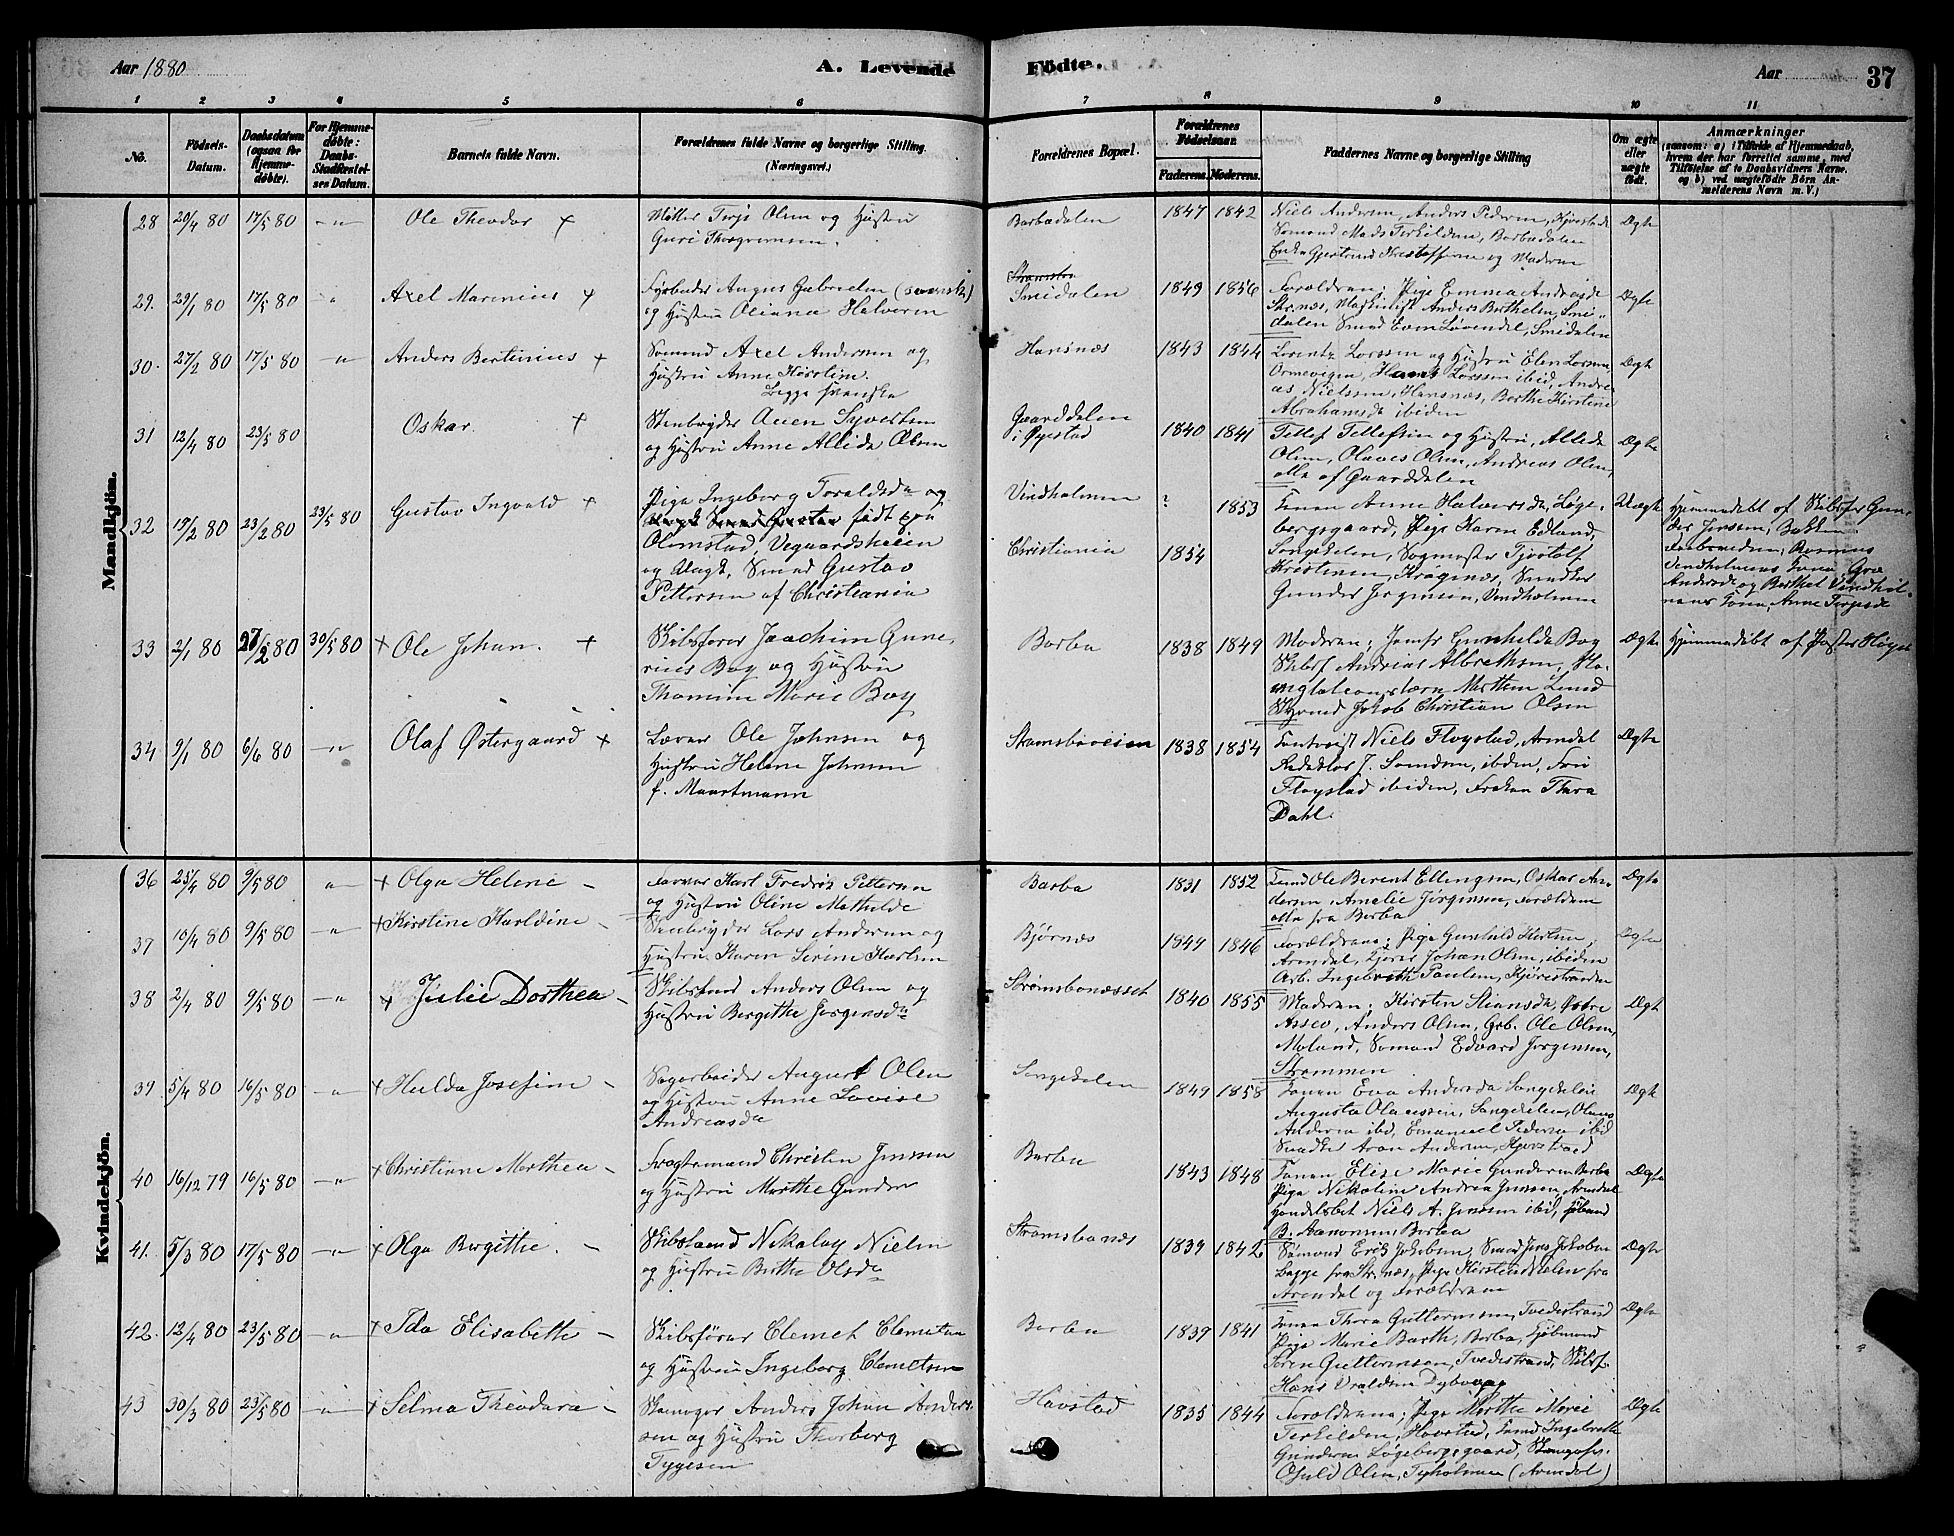 Aar 1880
A. Levende Födte.
Aar
37
1 2 3 4 5 6 7 8 9 10 11
No.
Födsels-Datum.
Daabsdatum (ogsaa for Hjemme-døbte).
For Hjemme-døbte: Daabs-Stadfæstel-ses Datum.
Barnets fulde Navn.
Forældrenes fulde Navne og borgerlige Stilling. (Næringsvei.)
Forældrenes Bopæl.
Forældrenes Födselsaar.
Faderens. Moderens.
Faddernes Navne og borgerlige Stilling
Om ægte eller uægte födt.
Anmærkninger
(saasom: a) i Tilfælde af Hjemmedaab,
hvem der har forrettet samme, med
Tilföielse af to Daabsvidners Navne.
og b) ved uægtefödte Börn An-
melderens Navn m. V.)
Mandkjön.
28 20/4 80 17/5 80 -"- Ole Theodor +
Møller Terje Olsen og Hustru
Guri Thorgrimsen.
Barbodalen 1847 1842
Niels Andersen, Anders Pedersen, Kjørestade
Sømand Mads Terkildsen, Barbodalen
Enke Gjertrud Kristoffersen og Moderen
Ægte
29. 29/1 80 17/5 80 " Axel Marinius +
Fyrbøder August Gabrielsen (svensk)
og Hustru Oliana Halvorsen
Smedalen 1849 1856
Forældrene; Pige Emma Andersd.
Str.næs, Maskinist Anders Berthelsen, Sme-
dalen Smed Even Løvendal, Smedalen
Ægte
30. 27/2 80 17/5 80 -"- Anders Bertinius +
Sømand Axel Andersen og
Hustru Anne Kirstine.
Begge svenske
Hansnæs 1843 1844
Lorentz Larssen og Hustru Elen Larsen
Ormevigen, Hans Larssen ibid, Andre-
as Nielssen, Hansnæs, Berthe Kirstine
Abrahamsd. ibiden
Ægte
31 12/4 80 23/5 80 Oskar. +
Stenbryder Auen Syvertsen
og Hustru Anne Allida Olsen
Gaarddalen
i Øyestad 1840 1841
Tellef Tellefsen og Hustru, Allida
Olsen, Olaves Olsen, Andreas Olsen,
alle af Gaarddalen
Ægte
32 19/2 80 23/2 80 23/5 80 Gustav Ingvald +
Pige Ingeborg Toraldsd. og
født paa
Olimstad, Vegaardsheien
og Ulagt, Smed Gustav
Pettersen af Christiania
Vindholmen ? 1853
Christiania 1854
Konen Anne Halvorsd., Løge-
bergsgaard, Pige Karen Edland,
Songekilen, Sagmester Tjostolf
Kristensen, Krøgenæs, Smedker
Gunder Jørgensen, Vindholmen
Uægte
Hjemmedøbt af Skibsfør Gun-
der Jenssen, Bakken
Andersd. og Berthel Vindhol-
mens Kone, Anne Terjesd.
33 2/1 80 27/2 80 30/5 80 + Ole Johan. +
Skibsfører Joachim Gune-
rius Boy og Hustru
Thomine Marie Boy
Barbo 1838 1849
Moderen; Jomfr Gunhilda Boy
Skibsf Andrias Albrethsen,
Morthen Lund
Styrmd Jakob Christian Olsen
Ægte
Hjemmedøbt af Pastor Høyer
34 9/1 80 6/6 80 -"- Olaf Østergaard +
Lærer Ole Johnsen og
Hustru Helene Johnsen
f. Maartmann
Strømsboveien 1838 1854
Niels Fløystad, Arendal
Redaktør J. ibiden, Frú
Fløystad ibiden, Frøken Thora
Dahl.
Ægte
Kvindekjön.
36 25/4 80 9/5 80 -"- + Olga Helene -
Farver Karl Fredrik Pettersen
og Hustru Oline Mathilde
Barbo 1831 1852
Smed Ole Berent Ellingsen, Oskar An-
dersen, Amelie Jørgensen, Forældrene
alle fra Barbo
Ægte
37 10/4 80 9/5 80 -"- + Kirstine Karldine -
Stenbryder Lars Andersen og
Hustru Karen Serine Karlsen
Bjørnæs 1849 1846
Forældrene; Pige Gunhild Kirstine,
Arendal, Kjører Johan Olsen, ibiden
Arb. Ingebreth Paulsen, Kjørestranden
Ægte
38 2/4 80 9/5 80 -"- + Julie Dorthea -
Skibstmd Anders Olsen og
Hustru Bergithe Jørgensdr
Strømsbonæsset 1840 1855
Moderen; Kirsten Stiansd., Østre
Assev, Anders Olsen, Grb. Ole Olsen,
Moland, Sømand Edvard Jørgensen,
Strømmen
Ægt
39. 5/4 80 16/5 80 -"- + Hulda Josefine -
Sagarbeider August Olsen
og Hustru Anne Lovise
Andreasd.
Songekilen 1849 1858
Konen Eva Andersd. Songekilen
Augusta Olavessen, Songekilen, Olaus
Andersen ibid, Emanuel Pedersen ibid
Smedker Aron Andersen, Kjørstad
Ægt
40 16/12 79 16/5 80 -"- + Christiane Marthea -
Fragtemand Christen Jenssen
og Hustru Marthe Gunders
Barbo 1843 1848
Konen Elise Marie Gundersen Barbo
Pige Nikoline Andrea Jenssen, Arendal
Handelsbet Niels A. Jenssen ibid, Sømand
B. Aanonsen, Barbo
Ægte
41. 5/3 80 17/5 80 -"- + Olga Bergithe. -
Skibstmd Nikolay Nielsen
og Hustru Berthe Olsdr
Strømsbonæs 1839 1842
Sømand Erik Jakobsen, Smed Jens Jakobsen
begge fra Str.næs, Pige Kirsten Nielsen fra
Arendal og Forældrene
Ægte
42. 12/4 80 23/5 80 -"- + Ida Elisabeth -
Skibsfører Clemet Clemetsen
og Hustru Ingeborg Clemetsen
Barbo 1839 1841
Konen Thora Guttormsen, Tvedestrand
Pige Marie Barth, Barbo, Kjøbmand
Søren Guttormsen, Tvedestrand, Skibsf.
Hans Vraldsen Dybvaag
Ægte
43 30/3 80 23/5 80 -"- + Selma Theodora -
Skomager Anders Johan Anders-
sen og Hustru Thorborg
Tygesen
Havstad 1835 1844
Forældrene; Pige Marthe Marie
Terkildsen, Havstad, Smed Ingebreth
Gundersen Løgebergsgaard, Skomagersv.
Osuld Olsen, Tyholmen (Arendal)
Ægte